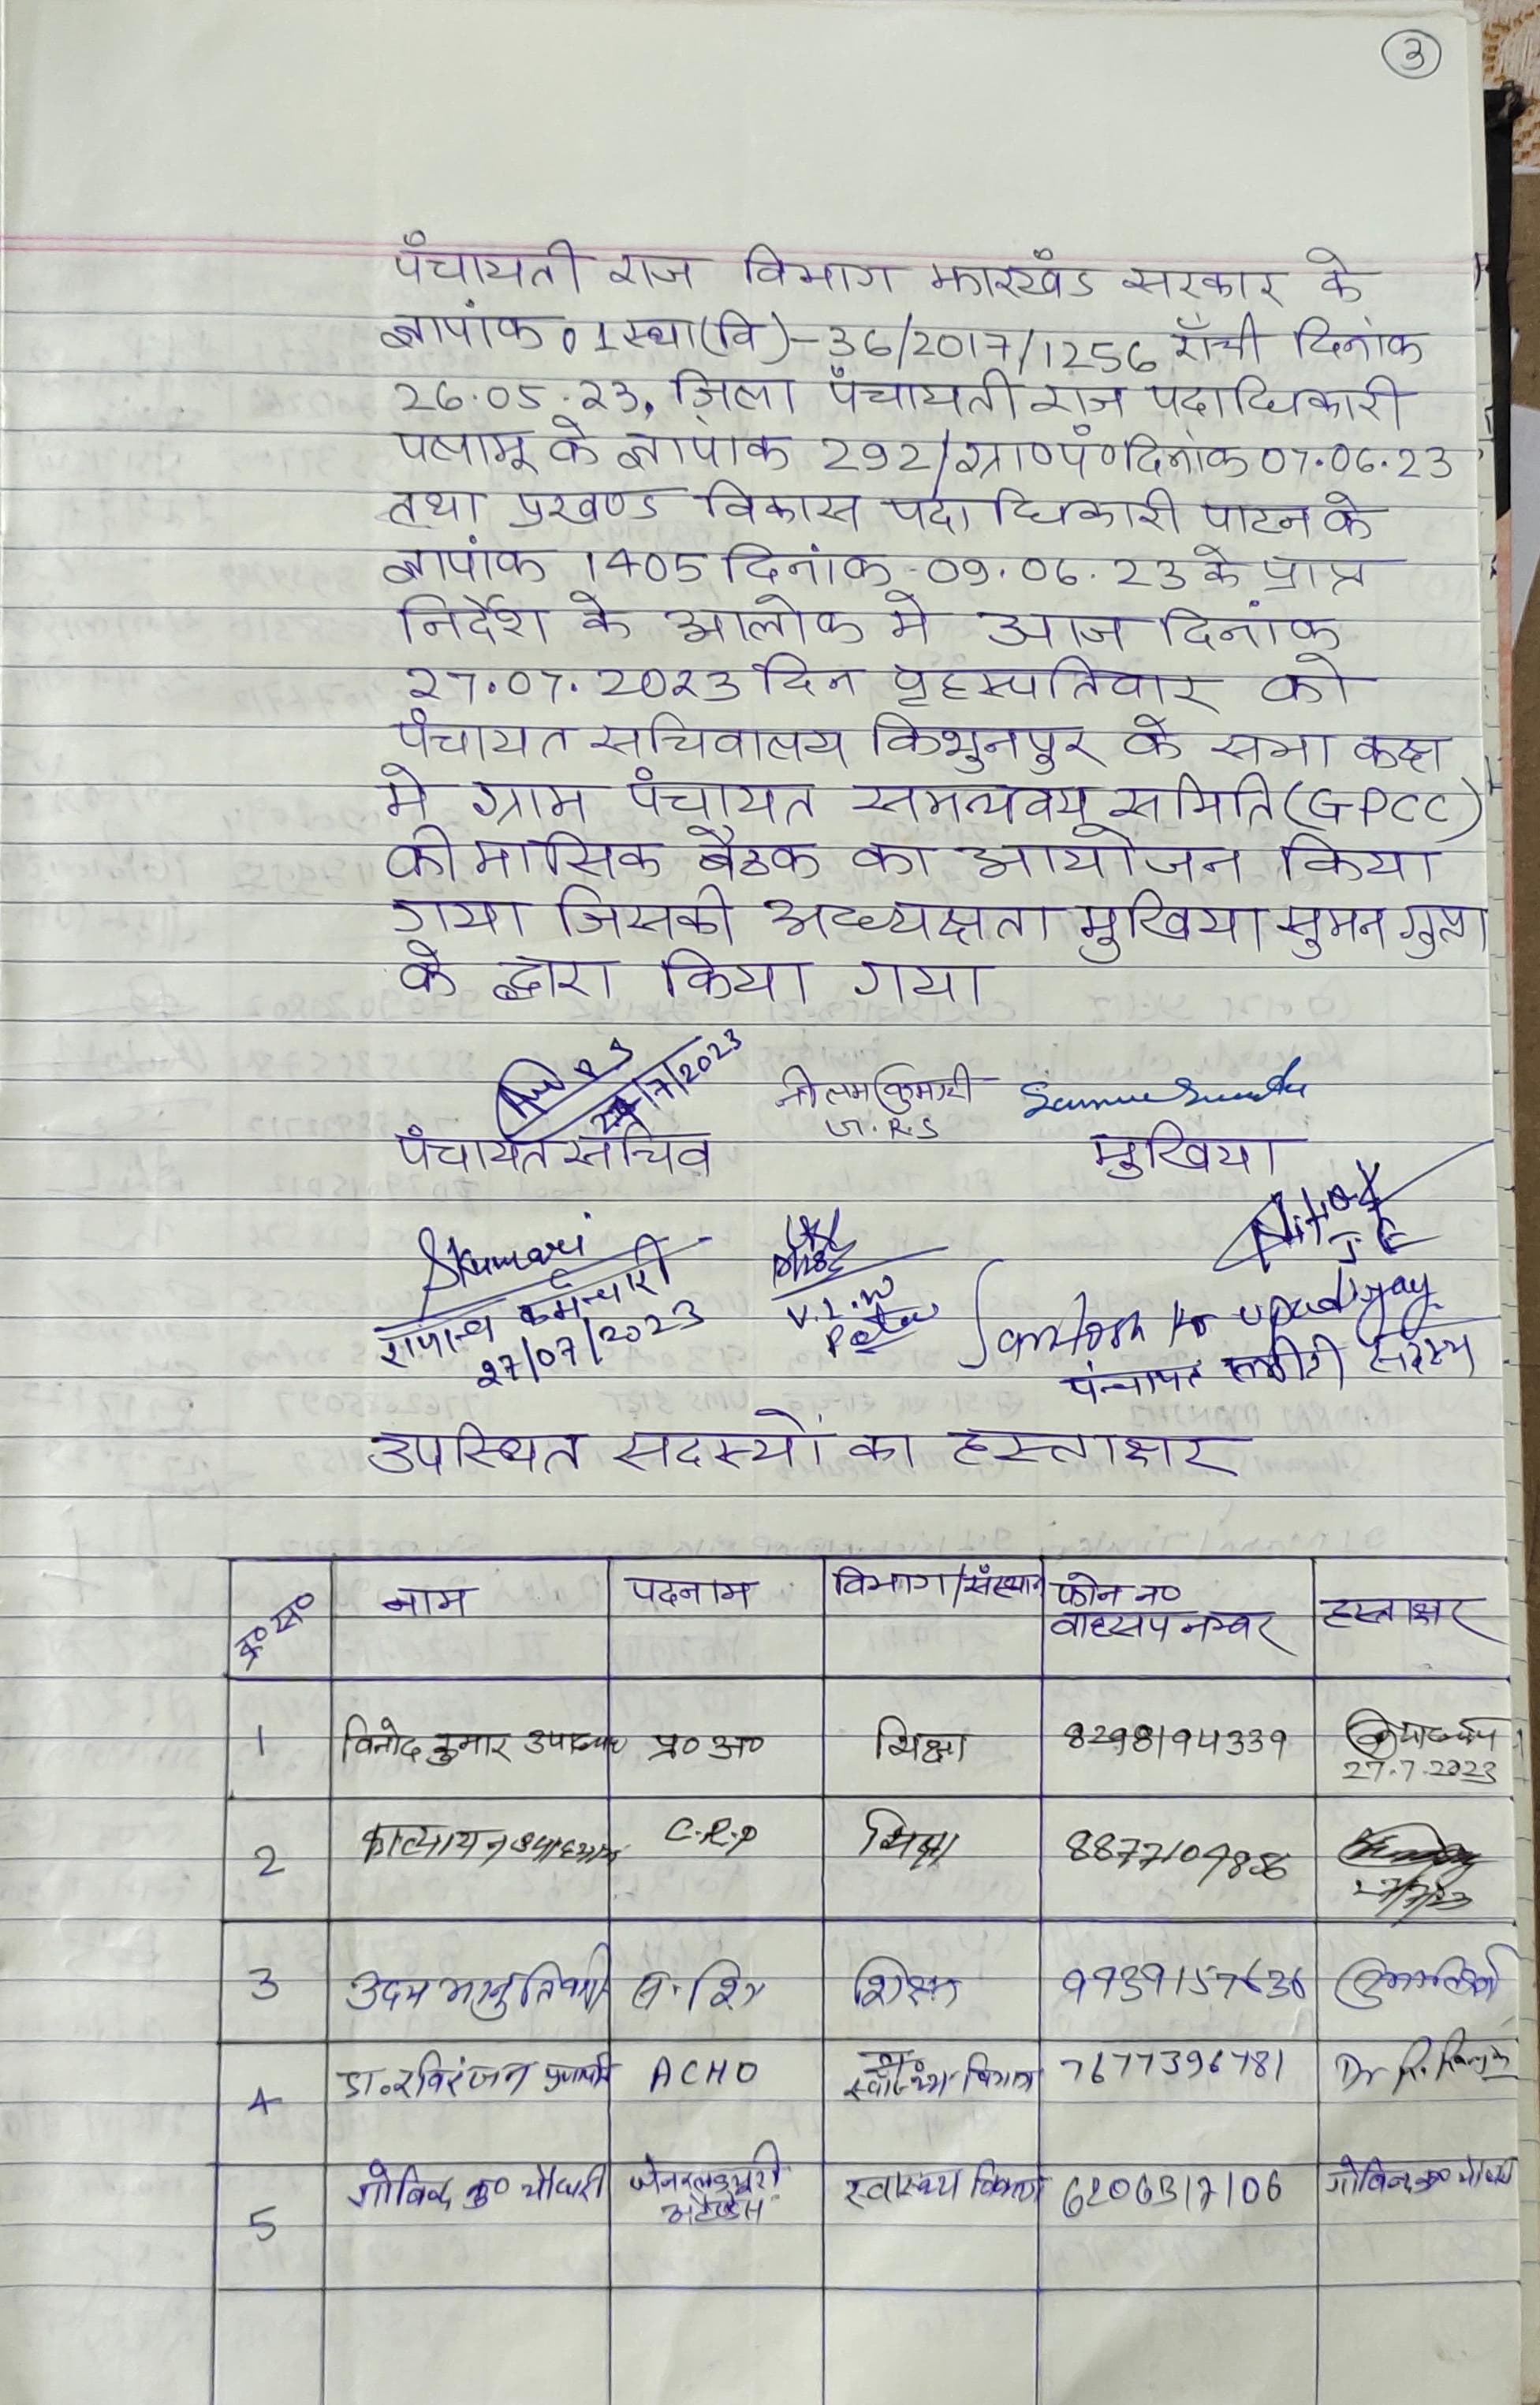 3
पंचायती राज विभाग झारखंड सरकार के
ज्ञापांक 01स्था(वि)-36/2017/1256 राँची दिनांक
26.05.23, जिला पंचायती राज पदाधिकारी
पलामू के ज्ञापांक 292/ग्रा०पं० दिनांक 07.06.23
तथा प्रखण्ड विकास पदाधिकारी पाटन के
ज्ञापांक 1405 दिनांक-09.06.23 के प्राप्त
निर्देश के आलोक मे आज दिनांक
27.07.2023 दिन वृहस्पतिवार को
पंचायत सचिवालय किशुनपुर के सभा कक्ष
मे ग्राम पंचायत समन्यवय समिति (GPCC)
की मासिक बैठक का आयोजन किया
गया जिसकी अध्यक्षता मुखिया सुमन गुप्ता
के द्वारा किया गया
/7/2023
नीलम कुमारी
G.R.S
पंचायत सचिव मुखिया
Skumari
राजस्व कर्मचारी
27/07/2023
V.L.W
J.E
Santosh kr upadhyay
पंचायत समीति सदस्य
उपस्थित सदस्यों का हस्ताक्षर
क्र०स० नाम पदनाम विभाग/संस्थान फोन न० वाट्सप नम्बर हस्ताक्षर
1 विनोद कुमार उपाध्याय प्र० अ० शिक्षा 8298194339 27.7.2023
2 कात्यायन उपाध्याय C.R.P शिक्षा 8877109886 27/7/23
3 उदय भानु तिवारी स. शि शिक्षा 9939157636
4 डा. रविरंजन ACHO स्वास्थ्य विभाग 7677396781 Dr R. Ranjan
5 गोविन्द कु० चौधरी जेनरल ड्यूटी स्वास्थ्य विभाग 6206317106 गोविन्द कु० चौधरी